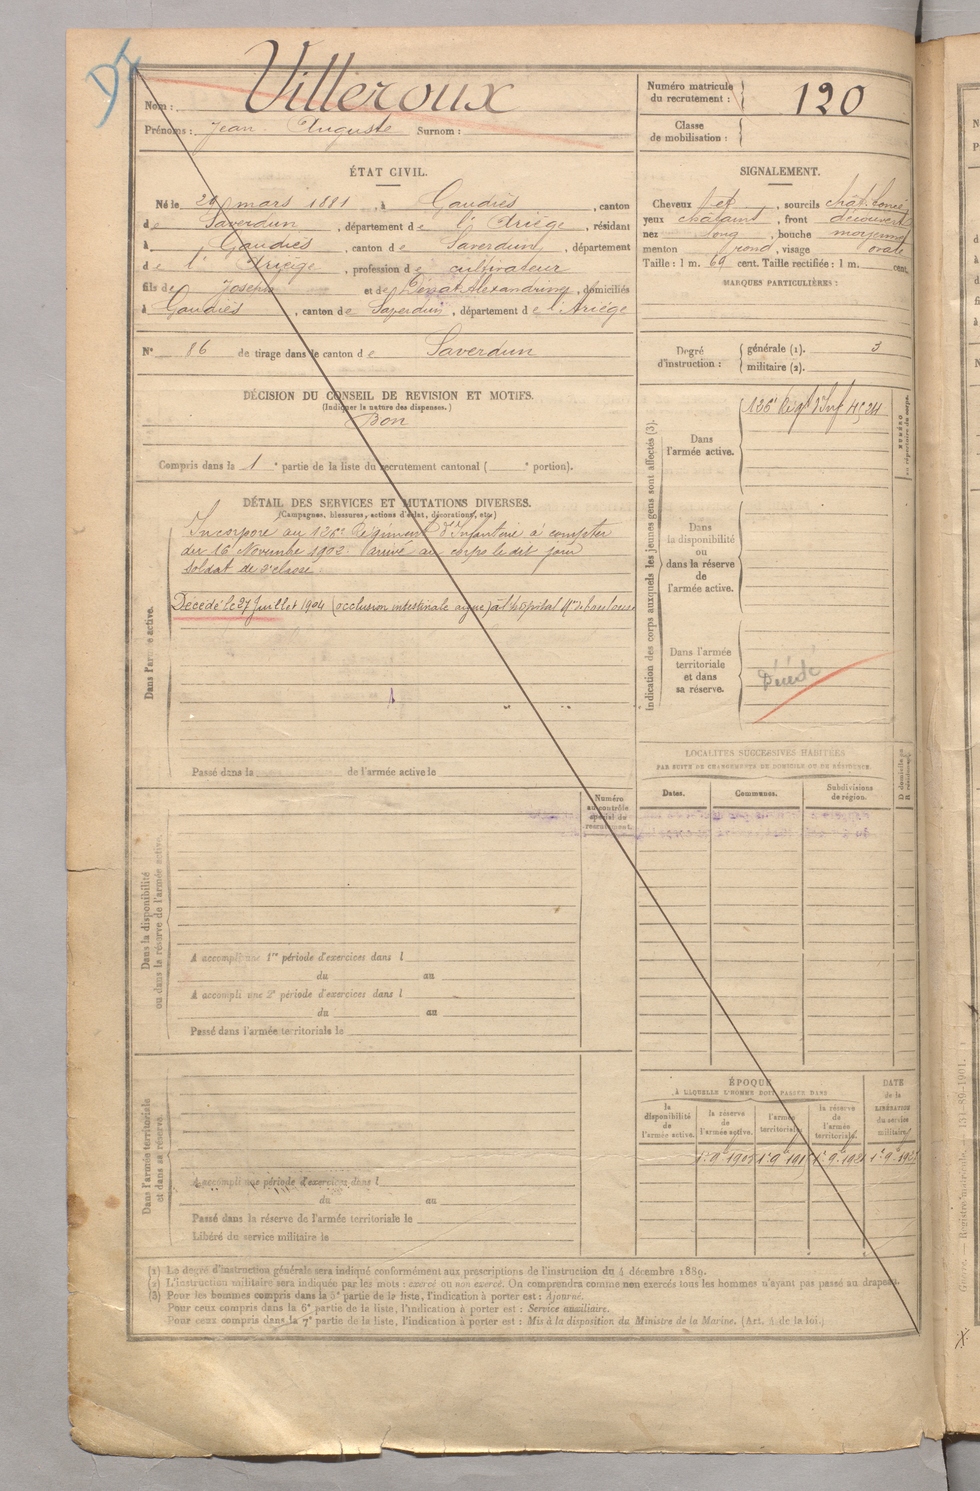 DI
Nom : Villeroux
Prénoms : Jean Auguste Surnom :
Numéro matricule du recrutement : 120
Classe de mobilisation :
ÉTAT CIVIL.
Né le 29 mars 1881, à Gaudiès, canton
de Saverdun, département de l'Ariège, résidant
à Gaudiès, canton de Saverdun, département
de l'Ariège, profession de cultivateur
fils de Joseph et de Alexandrine, domiciliés
à Gaudiès, canton de Saverdun, département de l'Ariège
N° 86 de tirage dans le canton de Saverdun
SIGNALEMENT.
Cheveux et, sourcils chât. foncé
yeux châtains, front découvert
nez long, bouche moyenne
menton rond, visage ovale
Taille : 1 m. 69 cent. Taille rectifiée : 1 m. cent.
MARQUES PARTICULIÈRES :
Degré d'instruction : générale (1). 3
militaire (2).
DÉCISION DU CONSEIL DE REVISION ET MOTIFS.
(Indiquer la nature des dispenses.)
Bon
Compris dans la 1e partie de la liste du recrutement cantonal ( e portion).
DÉTAIL DES SERVICES ET MUTATIONS DIVERSES.
(Campagnes, blessures, actions d'éclat, décorations, etc.)
Dans l'armée active.
Incorporé au 126e Régiment d'Infanterie à compter
du 16 Novembre 1902. Arrivé au corps le dit jour
soldat de 2e classe
Décédé le 27 Juillet 1904 (occlusion intestinale aigue) à l'hôpital Mre de Toulouse
Passé dans la de l'armée active le
Indication des corps auxquels les jeunes gens sont affectés (3).
Dans l'armée active.
126e Régt d'Inf 4524
NUMÉRO au répertoire du corps.
Dans la disponibilité ou dans la réserve de l'armée active.
Dans l'armée territoriale et dans sa réserve.
Décédé
LOCALITÉS SUCCESSIVES HABITÉES
PAR SUITE DE CHANGEMENTS DE DOMICILE OU DE RÉSIDENCE.
Dates. Communes. Subdivisions de région. D domicile R résidence.
Dans la disponibilité ou dans la réserve de l'armée active.
Numéro au contrôle spécial du recrutement.
A accompli une 1re période d'exercices dans l
du au
A accompli une 2e période d'exercices dans l
du au
Passé dans l'armée territoriale le
Dans l'armée territoriale et dans sa réserve.
A accompli une période d'exercices dans l
du au
Passé dans la réserve de l'armée territoriale le
Libéré du service militaire le
ÉPOQUE
À LAQUELLE L'HOMME DOIT PASSER DANS
la disponibilité de l'armée active. la réserve de l'armée active. l'armée territoriale. la réserve de l'armée territoriale.
DATE de la LIBÉRATION du service militaire.
(1) Le degré d'instruction générale sera indiqué conformément aux prescriptions de l'instruction du 4 décembre 1889.
(2) L'instruction militaire sera indiquée par les mots : exercé ou non exercé. On comprendra comme non exercés tous les hommes n'ayant pas passé au drapeau.
(3) Pour les hommes compris dans la 5e partie de la liste, l'indication à porter est : Ajourné.
Pour ceux compris dans la 6e partie de la liste, l'indication à porter est : Service auxiliaire.
Pour ceux compris dans la 7e partie de la liste, l'indication à porter est : Mis à la disposition du Ministre de la Marine. (Art. 4 de la loi.)